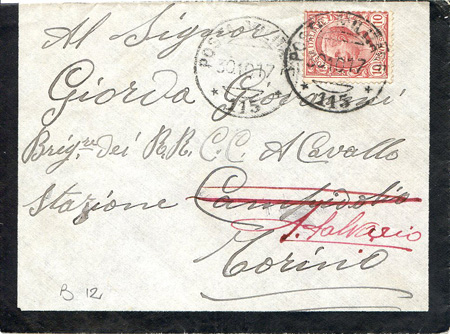 Al Signor
POSTA MILITARE
30.10.17
115
POSTA MILITARE
30.10.17
115
10 10
Giorda Giovanni
Brig.re dei R.R. C.C. A Cavallo
Stazione Campidolio
S. Salvario
Torino
B 12